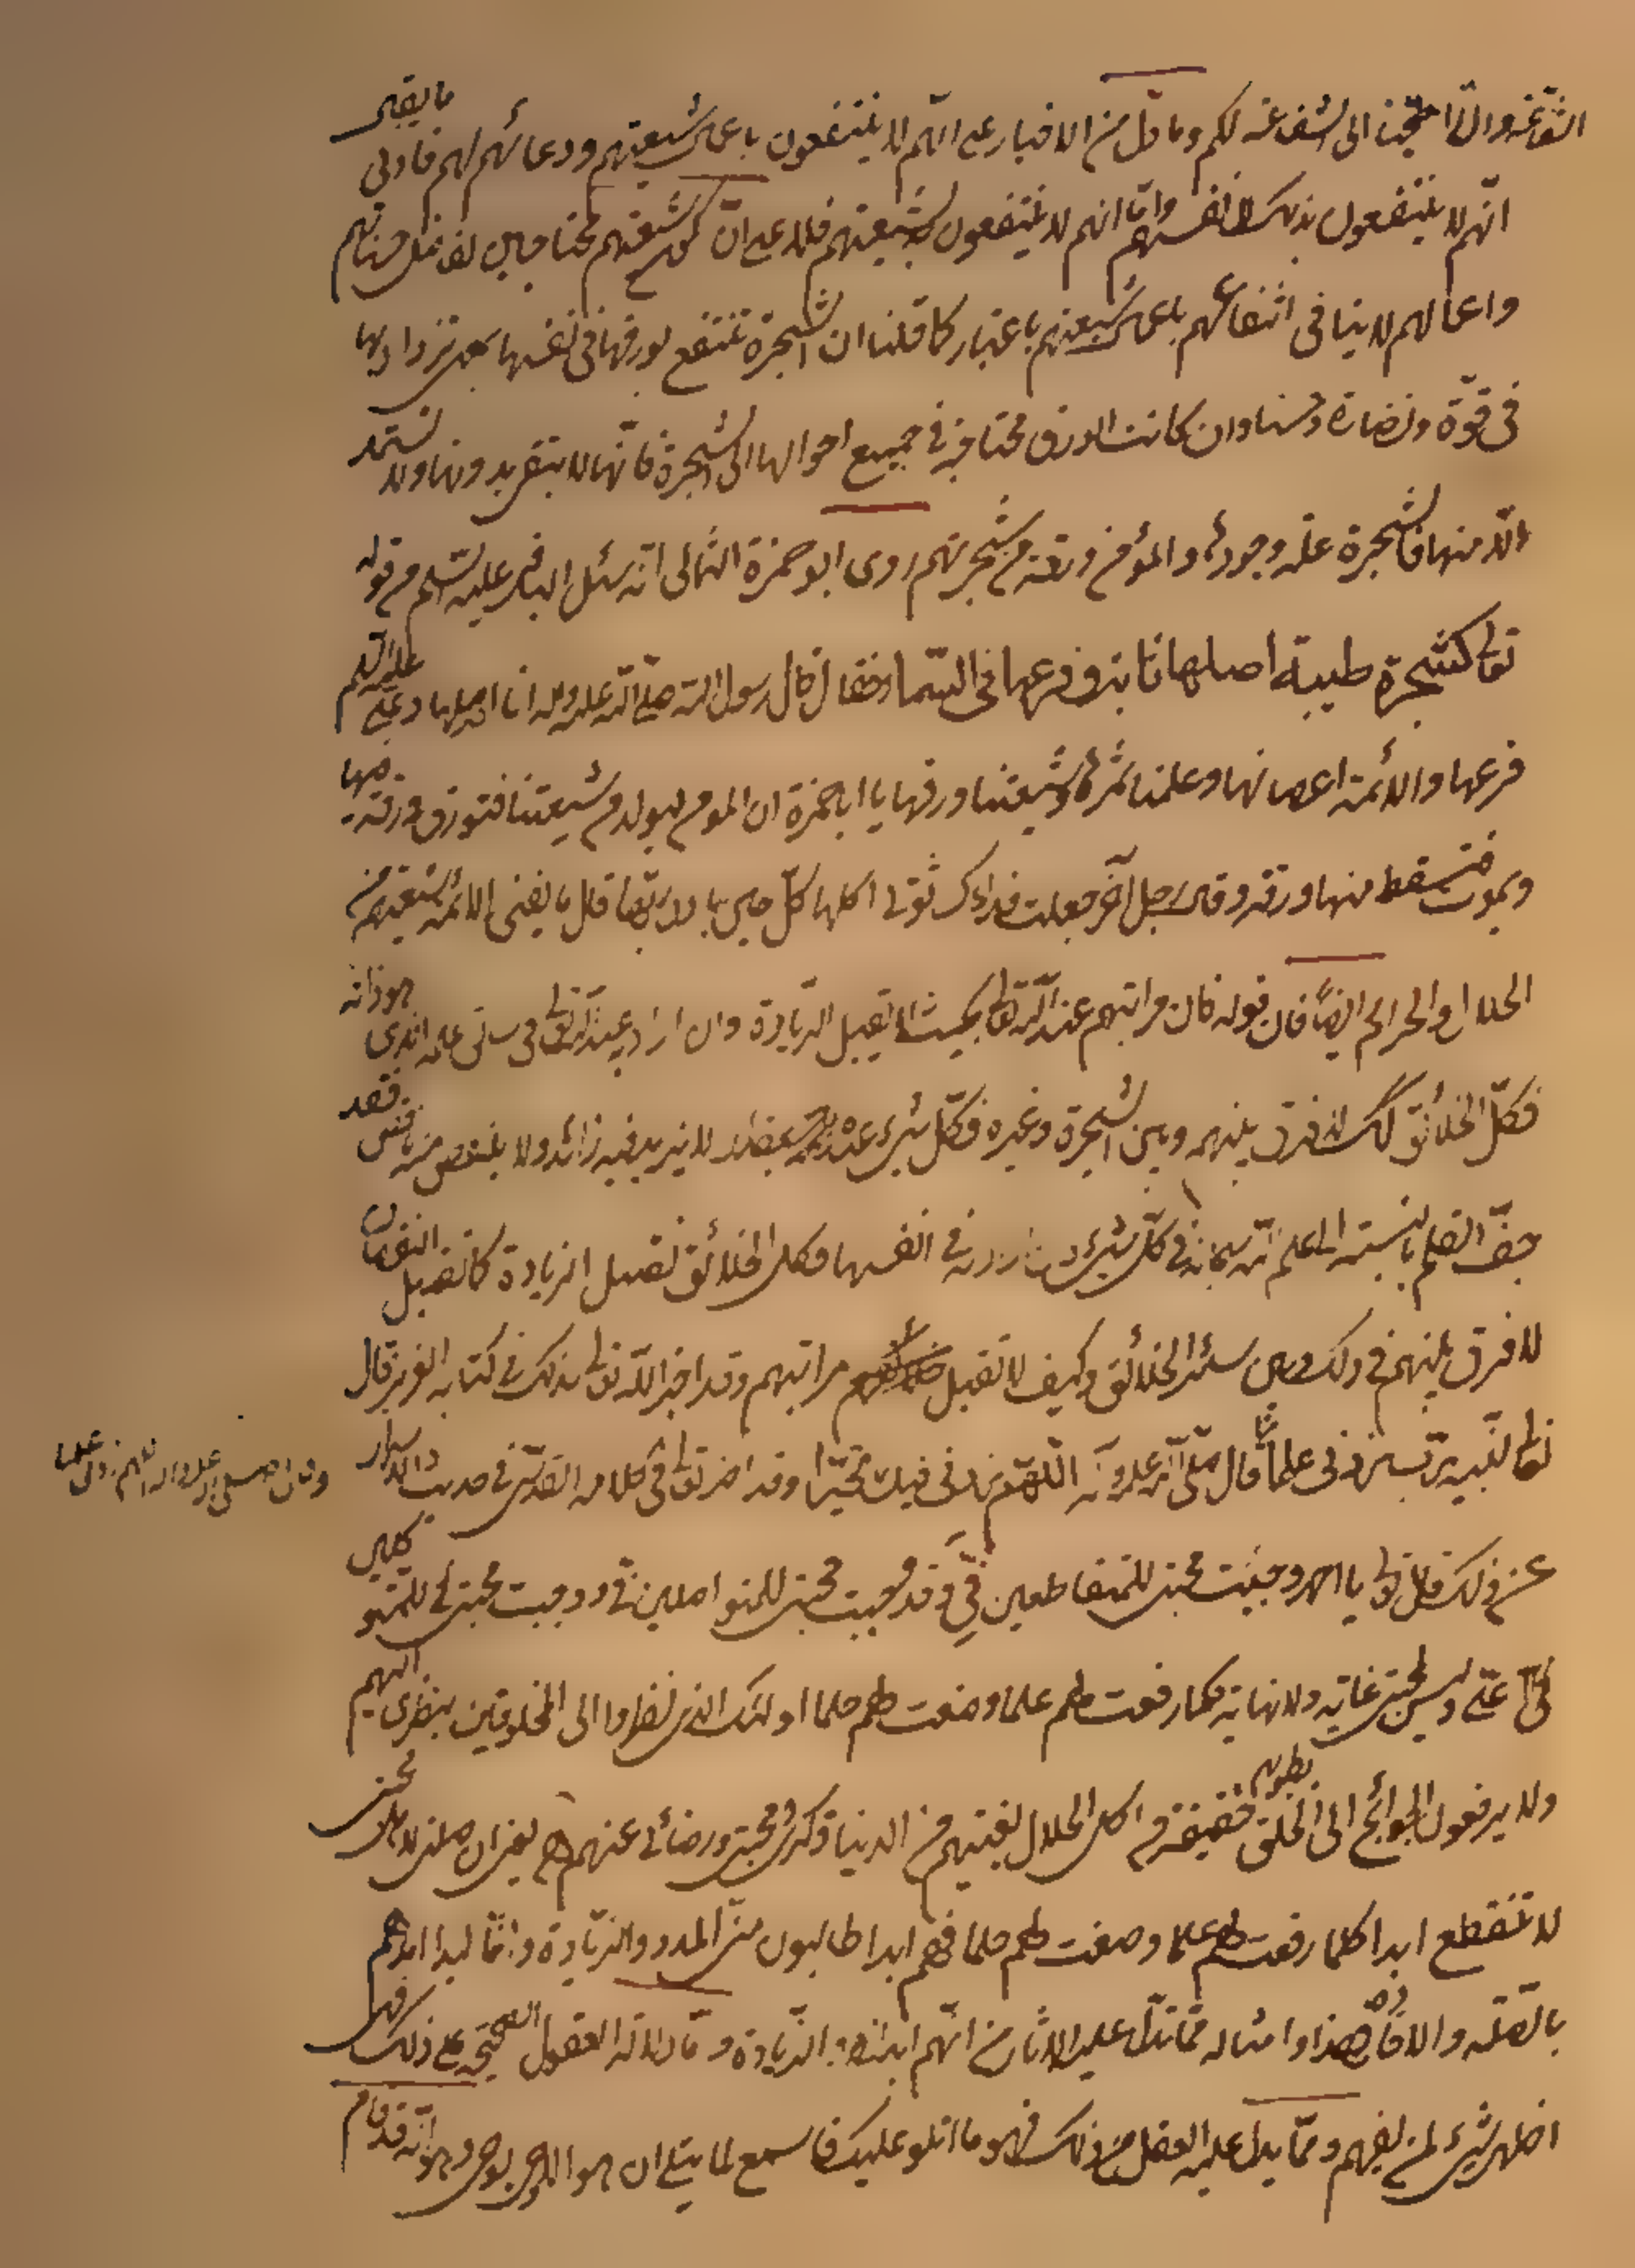 الشفاعة والا احتجنا الى الشفاعة لكم وما دل من الاخبار على انهم لا ينتفعون باعمال شيعتهم ودعائهم لهم فاولى ما يقبل
انهم لا ينتفعون بذلك لانفسهم واما انهم لا ينتفعون لشيعتهم فلا على ان كون شيعتهم محتاجين لفاضل حسناتهم
واعمالهم لا ينافى انتفاعهم باعمال شيعتهم باعتبار كما قلنا ان الشجرة تنتفع بورقها فى نفسها بعد تزداد بها
فى قوة ونضارة وحسنا وان كانت الورق محتاجة في جميع احوالها الى الشجرة فانها لا تتقر بدونها ولا تستمد
الا منها فالشجرة علة وجودها والمؤمن ورقة من شجرتهم روى ابو حمزة الثمالى انه سئل الباقر عليه السلم من قوله
تعالى كشجرة طيبة اصلها ثابت وفرعها فى السماء فقال قال رسول الله صلى الله عليه واله انا اصلها وعلى عليه السلم
فرعها والائمة اغصانها وعلمنا ثمرها وشيعتنا ورقها يا ابا حمزة ان المؤمن ليولد من شيعتنا فتورق ورقة منها
ويموت فتسقط منها ورقة وقال رجل آخر جعلت فداك تؤتى اكلها كل حين باذن ربها قال ما يفتى الائمة شيعتهم من
الحلال والحرام ايضا فان قوله كان مراتبهم عند الله تعالى بحيث لا تقبل الزيادة وان اراد عند الله تعالى فى سابق علمه الذى هو ذاته
فكل الخلائق كك لا فرق بينهم وبين الشجرة وغيره فكل شىء عنده بمقدار لا يزيد فيه زائد ولا ينقص منه ناقص فقد
جف القلم بالنسبة الى علم الله سبحانه في كل شىء وان اراد به في انفسها فكل الخلائق تقبل الزيادة كما تقبل النقصان
لا فرق بينهم فى ذلك وبين سائر الخلائق وكيف لا تقبل مراتبهم وقد اخبر الله تعالى بذلك فى كتابه العزيز قال
تعالى لنبيه رب زدنى علما قال صلى الله عليه وآله اللهم زدنى فيك تحيرا وقد اخبر تعالى فى كلامه القدسى فى حديث الاسرار
وقال صلى الله عليه واله اللهم زدنى علما
عن ذلك قال تعالى يا احمد وجبت محبتى للمتقاطعين فىّ وقد وجبت محبتى للمتواصلين فى ووجبت محبتى للمتوكلين
علىّ وليس لمحبتى غاية ولا نهاية كلما رفعت لهم علما وضعت لهم حلما اولئك الذين نظروا الى المخلوقين بنظرى اليهم
ولا يرفعون الحوائج الى الخلق بطونهم خفيفة من اكل الحلال نعيمهم من الدنيا ذكرى ومحبتى ورضائى عنهم يعنى ان صلتى لاهل محبتى
لا تنقطع ابدا كلما رفعت لهم علما وضعت لهم حلما فهم ابدا طالبون منى المدد والزيادة وانا ابدا امدهم
بالصلة والافادة هذا وامثاله مما تدل عليه الاثار من انهم ابدا والزيادة و دلالة العقول الصحيحة على ذلك فهل
اظهر شىء لمن يفهم ومما يدل عليه العقل من ذلك فهو ما اتلو عليك فاسمع لما يتلى ان هو الا وحى يوحى وهو انه قد قام